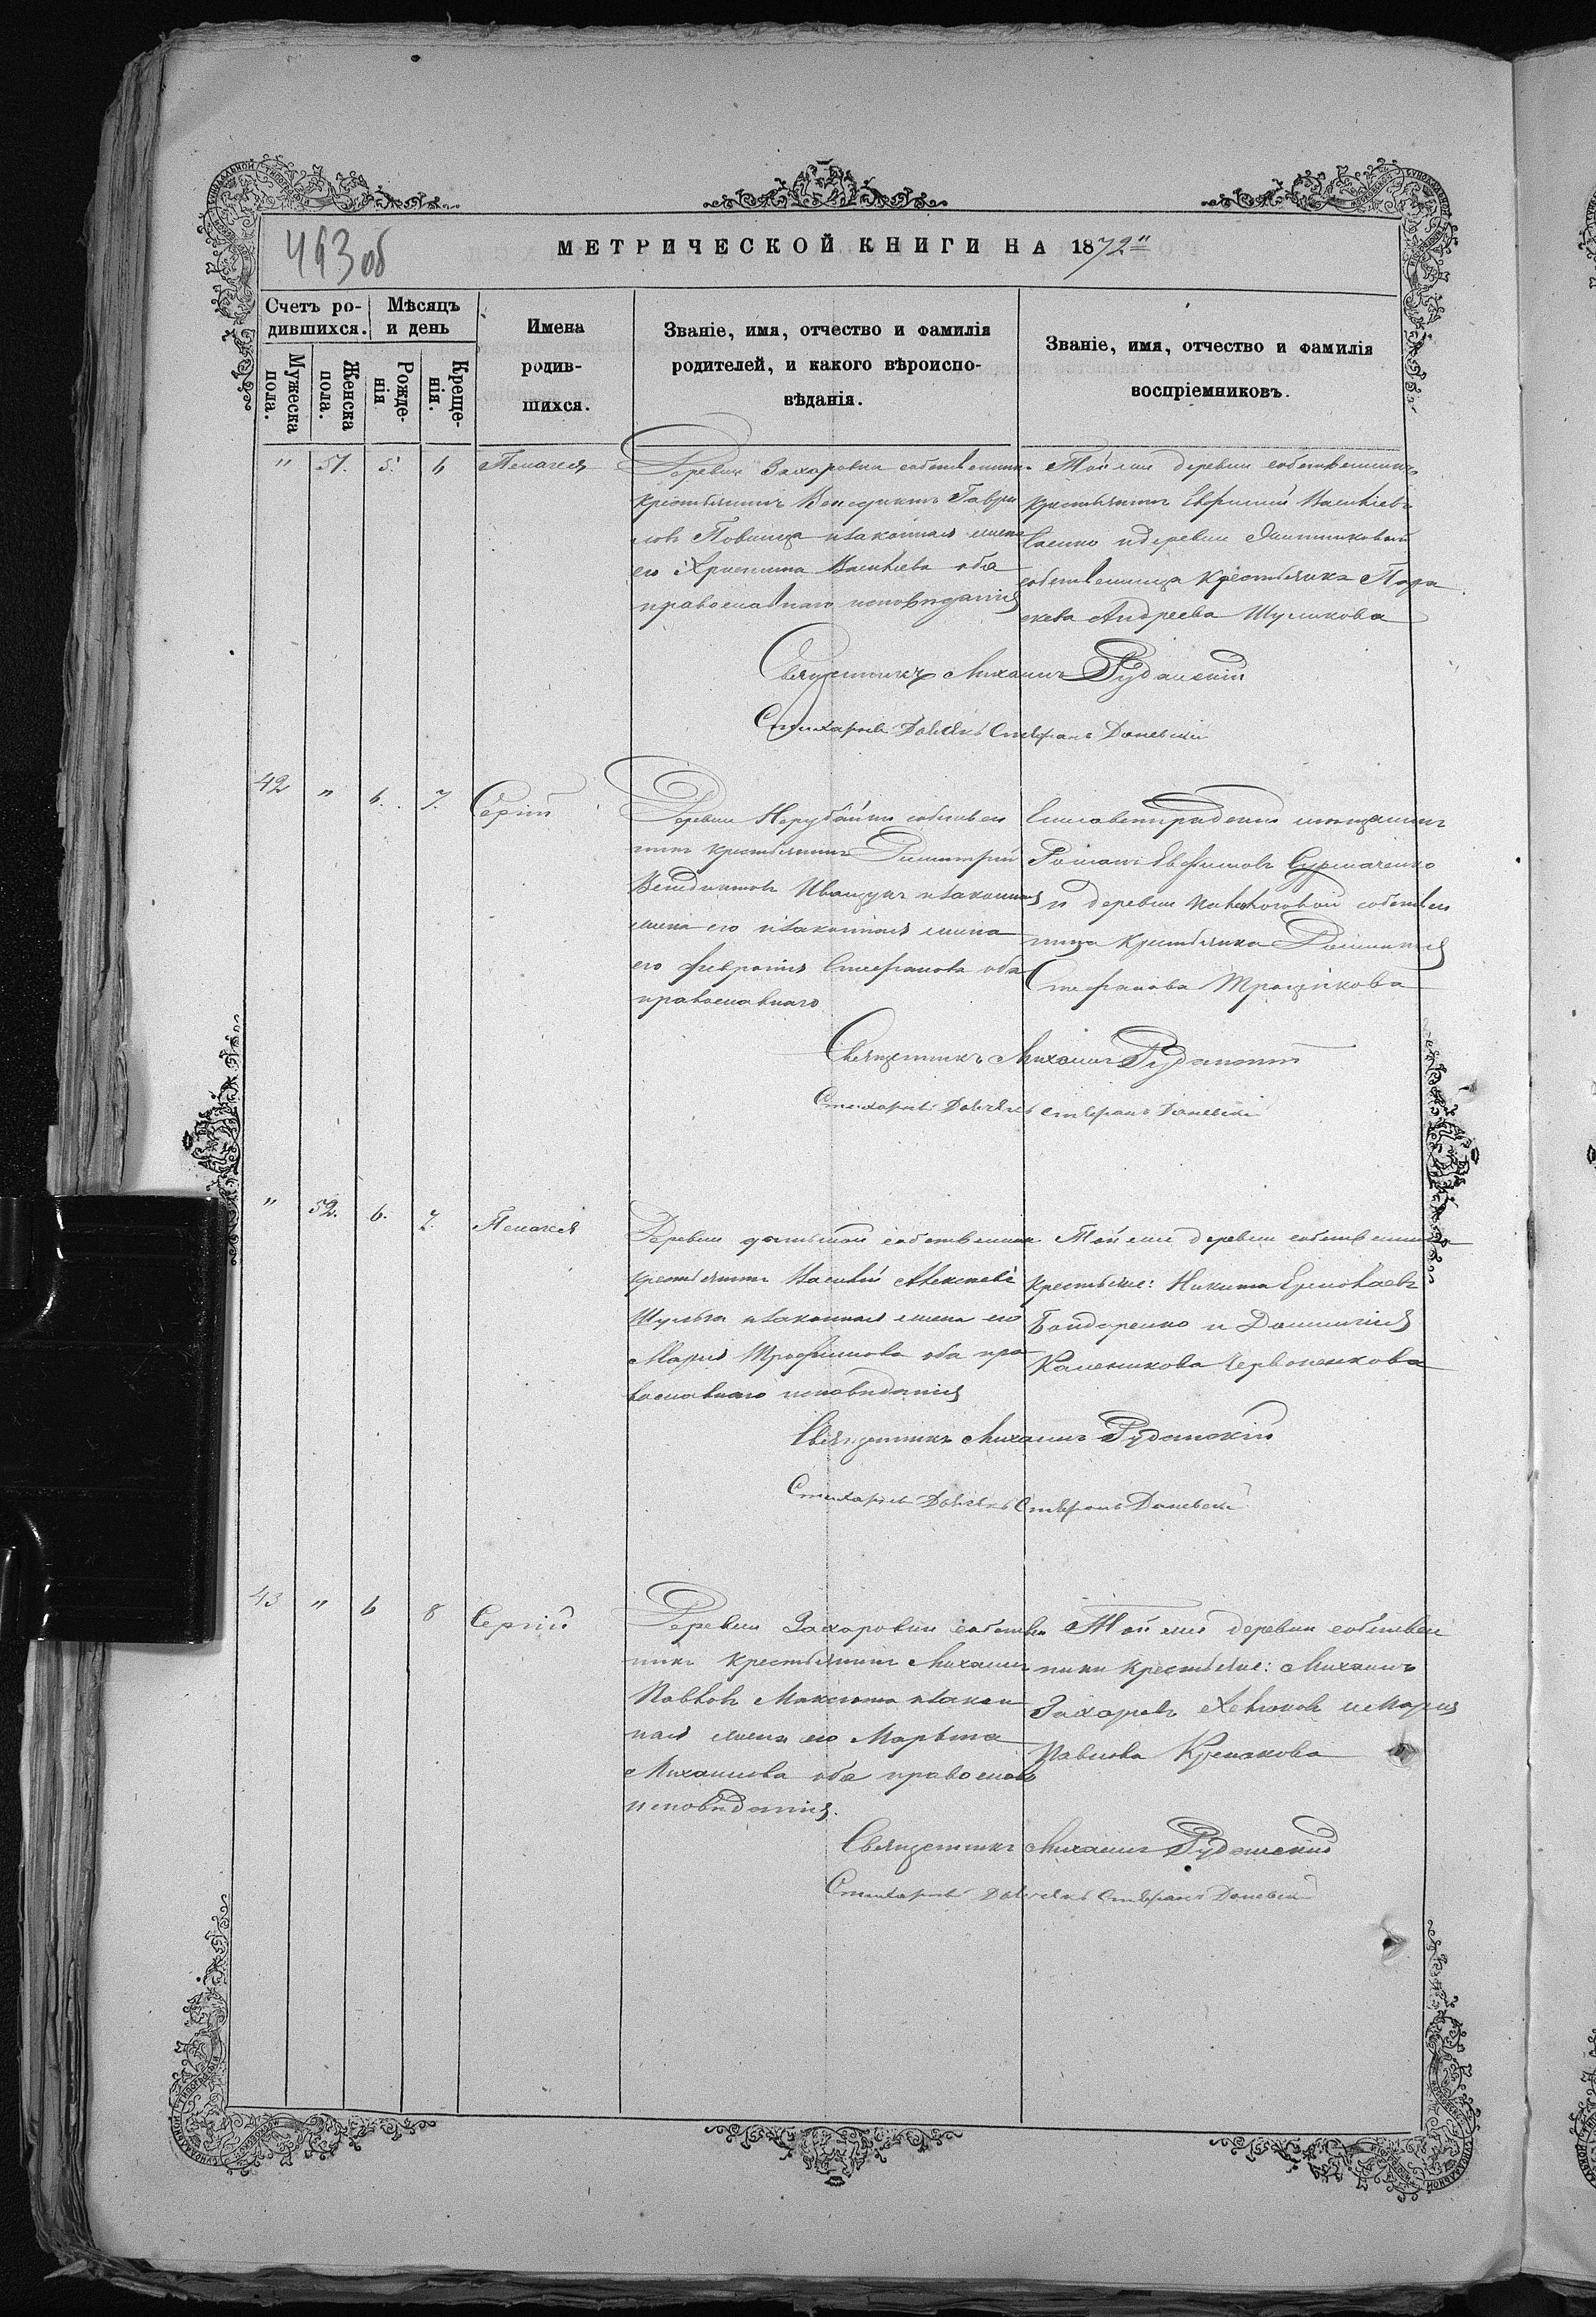 493 об
МЕТРИЧЕСКОЙ КНИГИ НА 1872
Счетъ ро-
дившихся.
Мѣсяцъ
и день
Мужеска
пола.
Женска
пола.
Рожде-
нія
Креще-
нія.
Имена
родив-
шихся.
Званіе, имя, отчество и фамилія
родителей, и какого вѣроиспо-
вѣданія.
Званіе, имя, отчество и фамилія
воспріемниковъ.
" 51. 5. 6 Пелагея
Деревни Захаровки собственникъ
крестьянинъ Венедиктъ Гаври
ловъ и законная жена
его Христина Васильева оба
православнаго исповѣданія
Той же деревни собственникъ
крестьянинъ Евфимій Васильевъ
и деревни
собственница крестьянка Пара
скева Андреева Шуликова
Священникъ Михаилъ Руданскій
Стихарный Дьячекъ Стефанъ Даневскій
42 " 6. 7. Сергій
Деревни Нерубайки собствен
никъ крестьянинъ Димитрій
Венедиктовъ Иващукъ и законная
жена его и законная жена
его Февронія Стефанова оба
православнаго
Елисаветградскій мещанинъ
Романъ Евфимовъ Сурмаченко
и деревни собствен
ница крестьянка Домникія
Стефанова
Священникъ Михаилъ Руданскій
Стихарный Дьячекъ Стефанъ Даневскій
" 52. 6. 7. Пелагея
Деревни собственникъ
крестьянинъ Василій Алексѣевъ
Шульга и законная жена его
Марія Трофимова оба пра
вославнаго исповѣданія
Той же деревни собственники
крестьяне: Никита Ермолаевъ
Бондаренко и Домникія
Каленикова Червоненкова
Священникъ Михаилъ Руданскій
Стихарный Дьячекъ Стефанъ Даневскій
43 " 6 8 Сергій
Деревни Захаровки собствен
никъ крестьянинъ Михаилъ
Павловъ Максюта и закон
ная жена его Марѳа
Михаилова оба православ
исповѣданія.
Той же деревни собствен
ники крестьяне: Михаилъ
Захаровъ и Марія
Павлова
Священникъ Михаилъ Руданскій
Стихарный Дьячекъ Стефанъ Даневскій